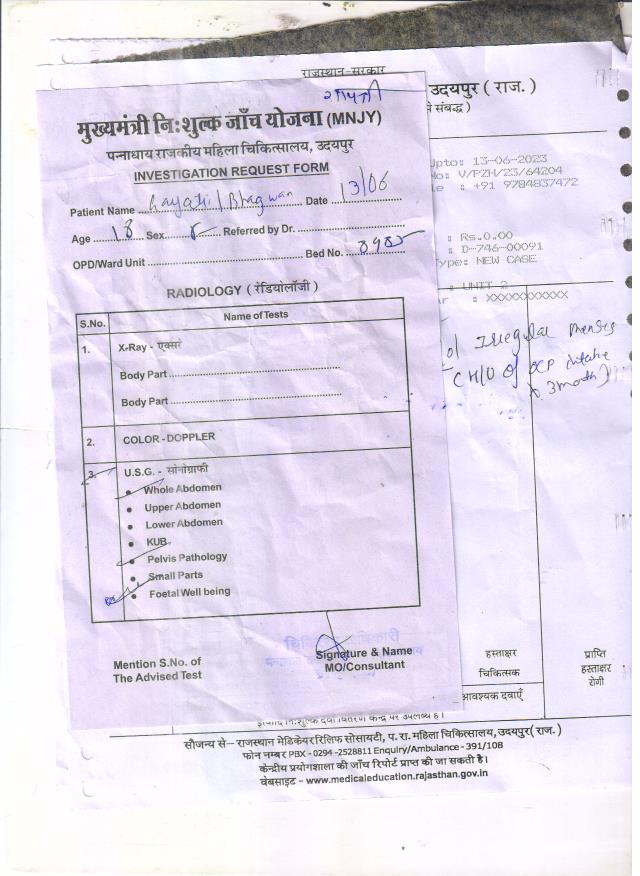 राजस्थान-सरकार
उदयपुर ( राज. )
से संबद्ध )
गायत्री
मुख्यमंत्री निःशुल्क जाँच योजना (MNJY)
पन्नाधाय राजकीय महिला चिकित्सालय, उदयपुर
INVESTIGATION REQUEST FORM
Patient Name Gayatri / Bhagwan Date 13/06
Age 18 Sex Referred by Dr.
OPD/Ward Unit Bed No.
RADIOLOGY ( रेडियोलॉजी )
S.No. Name of Tests
1. X-Ray - एक्सरे
Body Part
Body Part
2. COLOR - DOPPLER
3. U.S.G. - सोनोग्राफी
• Whole Abdomen
• Upper Abdomen
• Lower Abdomen
• KUB
• Pelvis Pathology
• Small Parts
• Foetal Well being
Mention S.No. of
The Advised Test
Signature & Name
MO/Consultant
Upto: 13-06-2023
No: V/PZH/23/64204
: +91 9784837472
: Rs.0.00
: D-746-00091
Type: NEW CASE
: UNIT 2
: XXXXXXXXXXX
Irregular menses
OCP intake
3 month)
हस्ताक्षर
चिकित्सक
प्राप्ति
हस्ताक्षर
रोगी
आवश्यक दवाऐं
इत्यादि निःशुल्क दवा वितरण केन्द्र पर उपलब्ध है।
सौजन्य से– राजस्थान मेडिकेयर रिलिफ सोसायटी, प. रा. महिला चिकित्सालय, उदयपुर( राज. )
फोन नम्बर PBX - 0294 -2528811 Enquiry/Ambulance - 391/108
केन्द्रीय प्रयोगशाला की जाँच रिपोर्ट प्राप्त की जा सकती है।
वेबसाइट - www.medicaleducation.rajasthan.gov.in